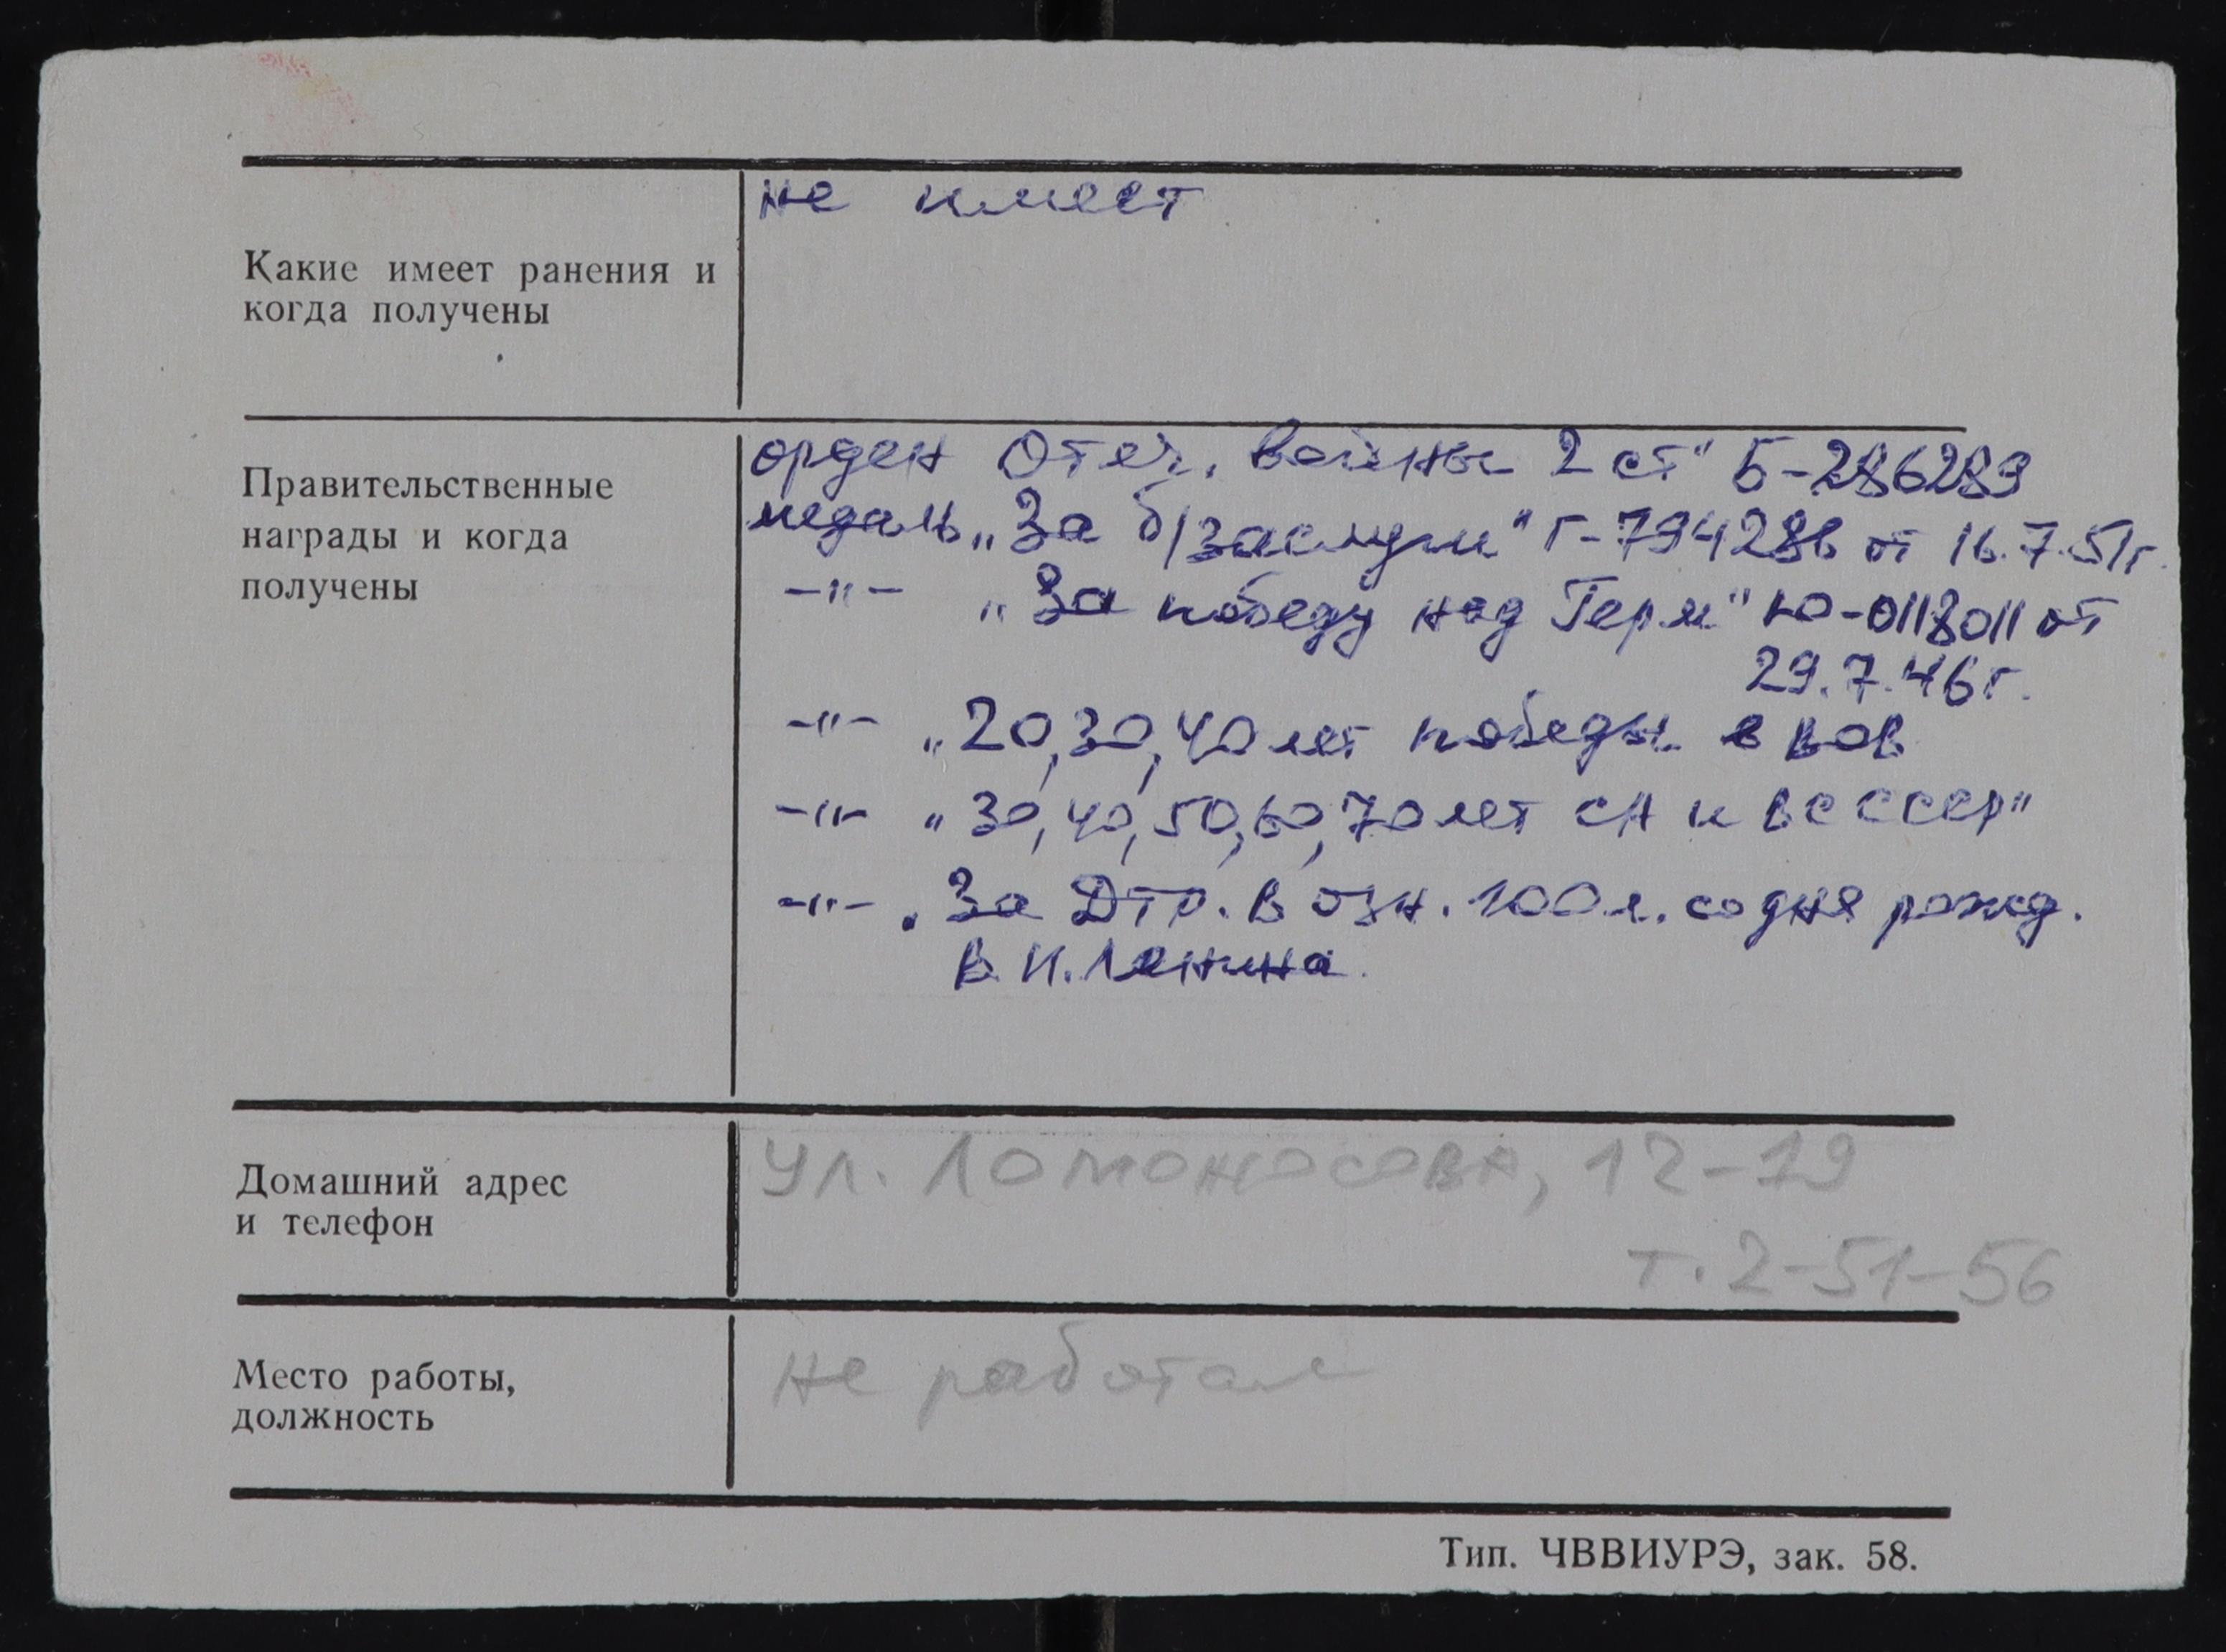 Какие имеет ранения и
когда получены
не имеет
Правительственные
награды и когда
получены
орден Отеч. войны 2 ст" Б-286289
медаль „За б/заслуги" Г-794286 от 16.7.51г.
-"- „За победу над Герм" Ю-0118011 от
29.7.46г.
-"- „20,30,40 лет победы в ВОВ
-"- „30,40,50,60,70 лет СА и ВС СССР"
-"- „За Дтр. В озн. 100 л. со дня рожд.
В.И.Ленина.
Домашний адрес
и телефон
ул. Ломоносова, 12-19
т. 2-51-56
Место работы,
должность
не работал
Тип. ЧВВИУРЭ, зак. 58.